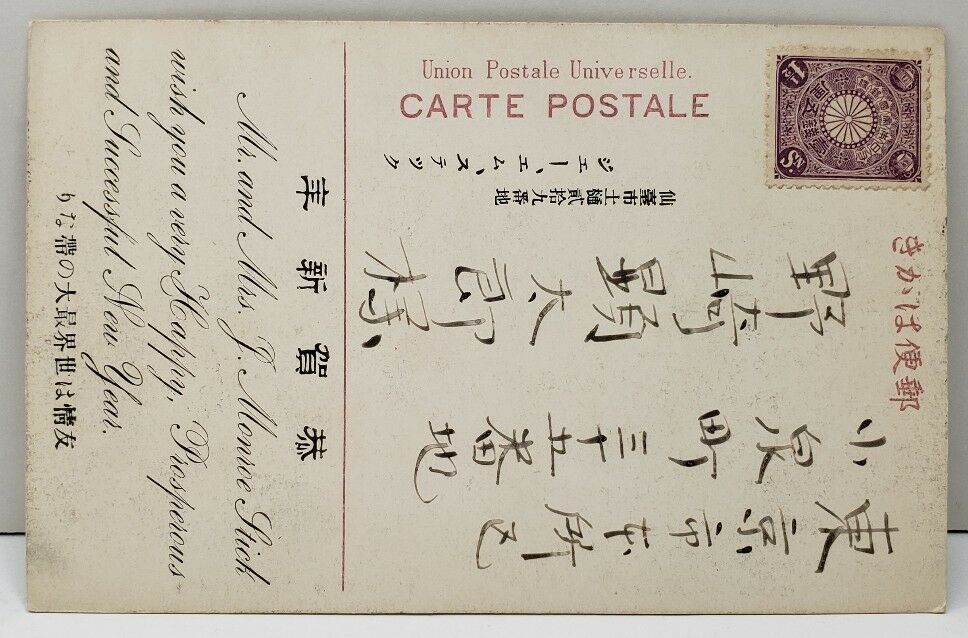 Union Postale Universelle.
CARTE POSTALE
郵便はかき
東京市本所区
小泉町三十五番地
野崎顕太郎様
仙臺市土樋貳拾九番地
ジエー、エム、ステツク
恭賀新年
Mr. and Mrs. J. Monroe Stick
wish you a very Happy, Prosperous
and Successful New Year.
友情は世界最大の帶なり
1½ Sn.